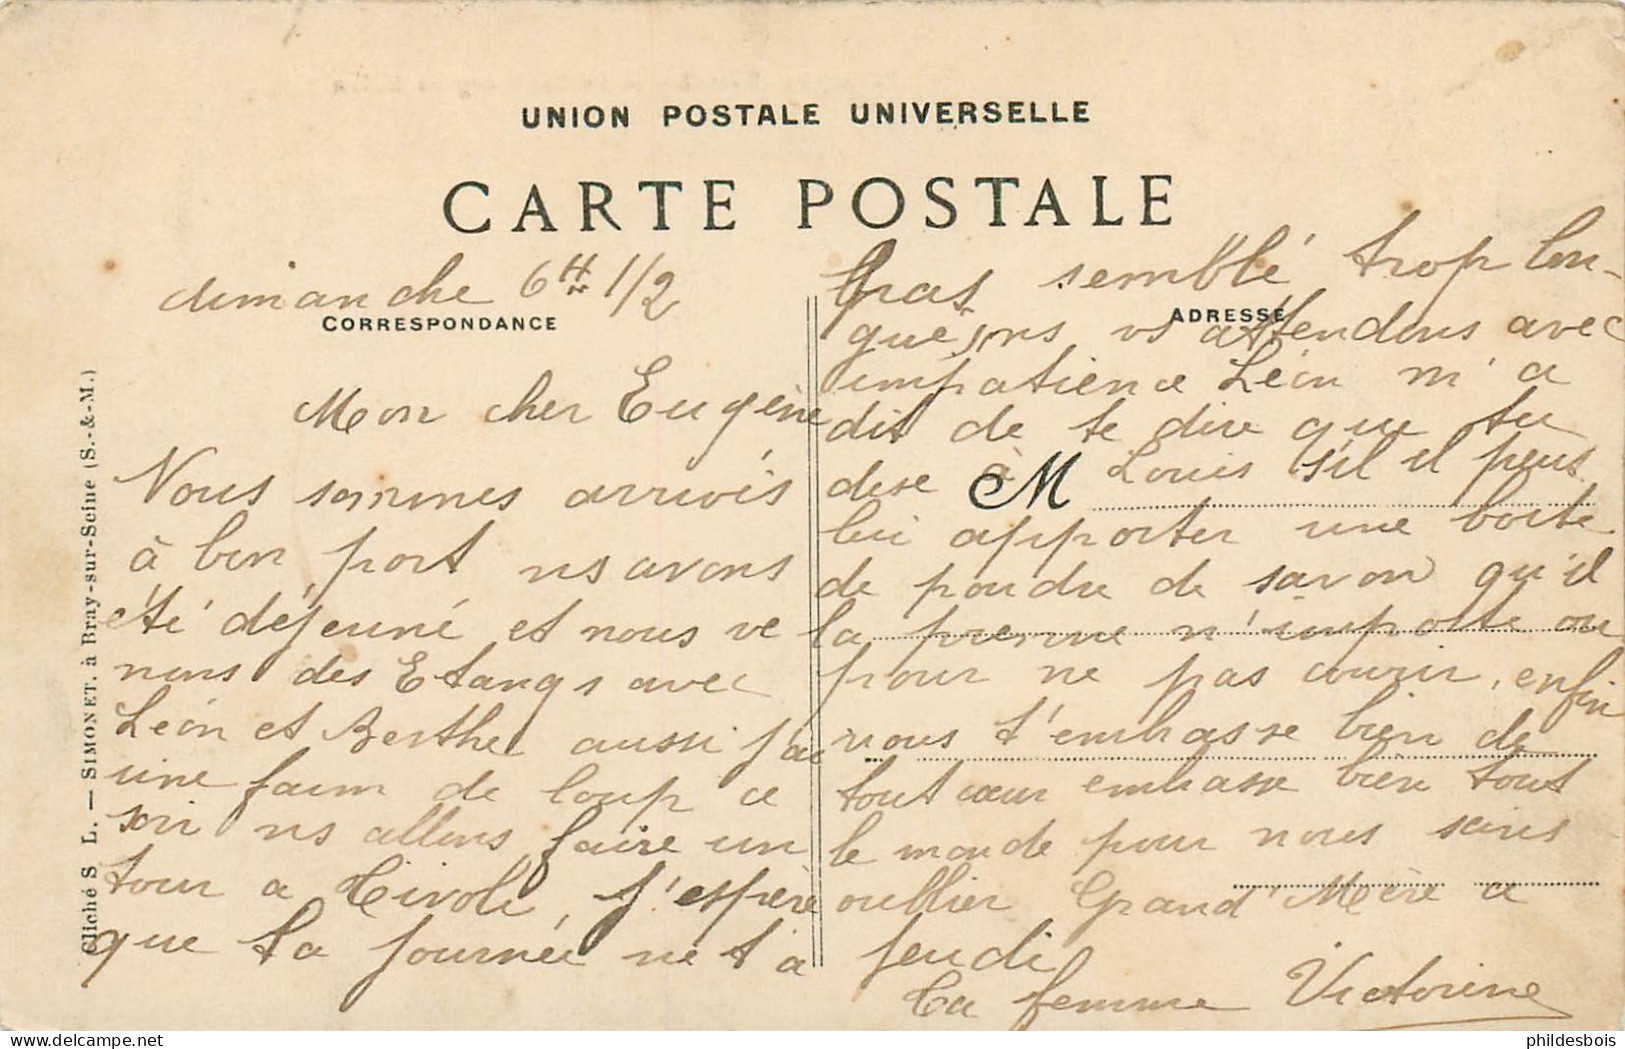 UNION POSTALE UNIVERSELLE
CARTE POSTALE
CORRESPONDANCE
ADRESSE
M
Cliché S L. — SIMONET. à Bray-sur-Seine (S.-&-M.)
dimanche 6H 1/2
Mon cher Eugène
Nous sommes arrivés
à bon port ns avons
été déjeuné et nous ve
nons des Etangs avec
Léon et Berthe aussi j'ai
une faim de loup ce
soir ns allons faire un
tour a Tivoli, J'espère
que ta journée ne t'a
pas semblé trop lon-
gue, ns vs attendons avec
impatience Léon m'a
dit de te dire que tu
dise à Louis s'il il peut
lui apporter une boite
de poudre de savon qu'il
la prenne n'importe ou
pour ne pas courir, enfin
nous t'embrasse bien de
tout cœur embrasse bien tout
le monde pour nous sans
oublier Grand'Mère a
jeudi
Ta femme Victorine
phildesbois